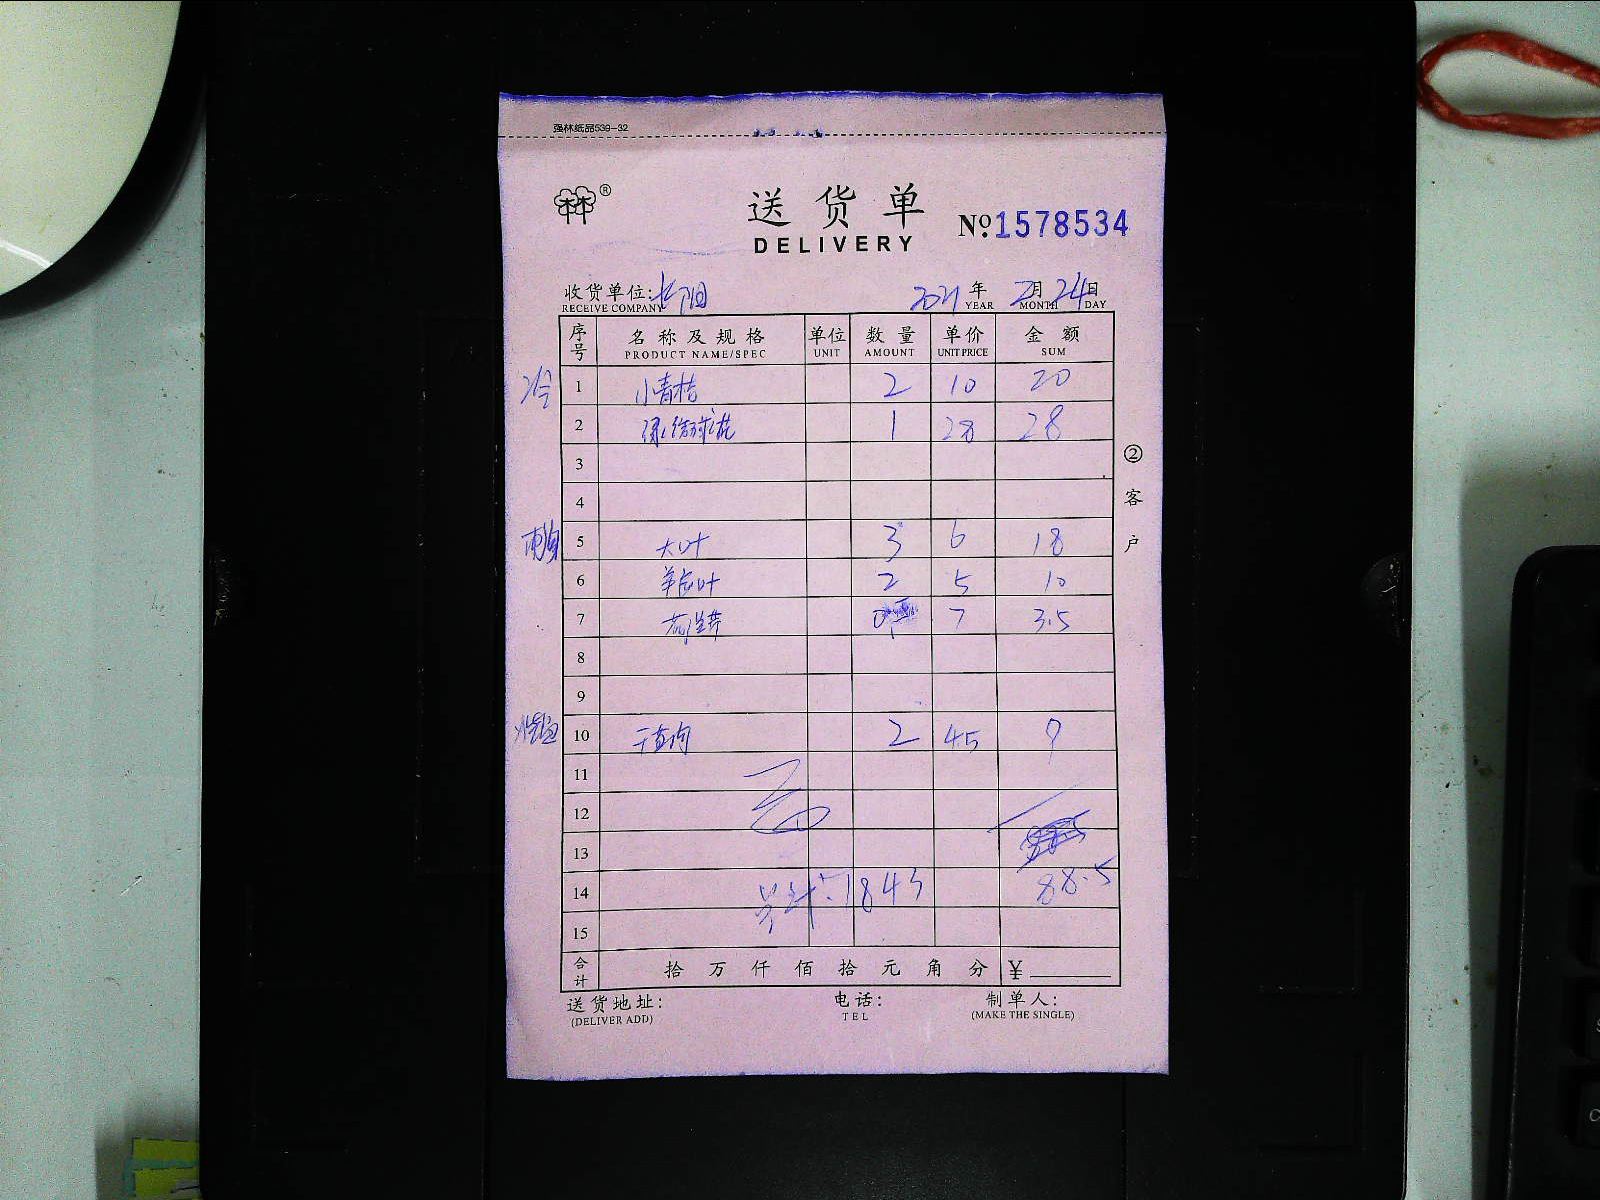 强林纸品539-32
林林®
送货单
DELIVERY
№1578534
收货单位:长阳
RECEIVE COMPANY
2021年 2月24日
YEAR MONTH DAY
序号 名称及规格 单位 数量 单价 金额
PRODUCT NAME/SPEC UNIT AMOUNT UNIT PRICE SUM
冷 1 小青桔 2 10 20
2 1 28 28
3
4
5 大叶 3 6 18
6 2 5 10
7 7 3.5
8
9
10 2 4.5 9
11
12
13
14 共计:1843 88.5
15
合计 拾 万 仟 佰 拾 元 角 分 ¥
②客户
送货地址: 电话: 制单人:
(DELIVER ADD) TEL (MAKE THE SINGLE)